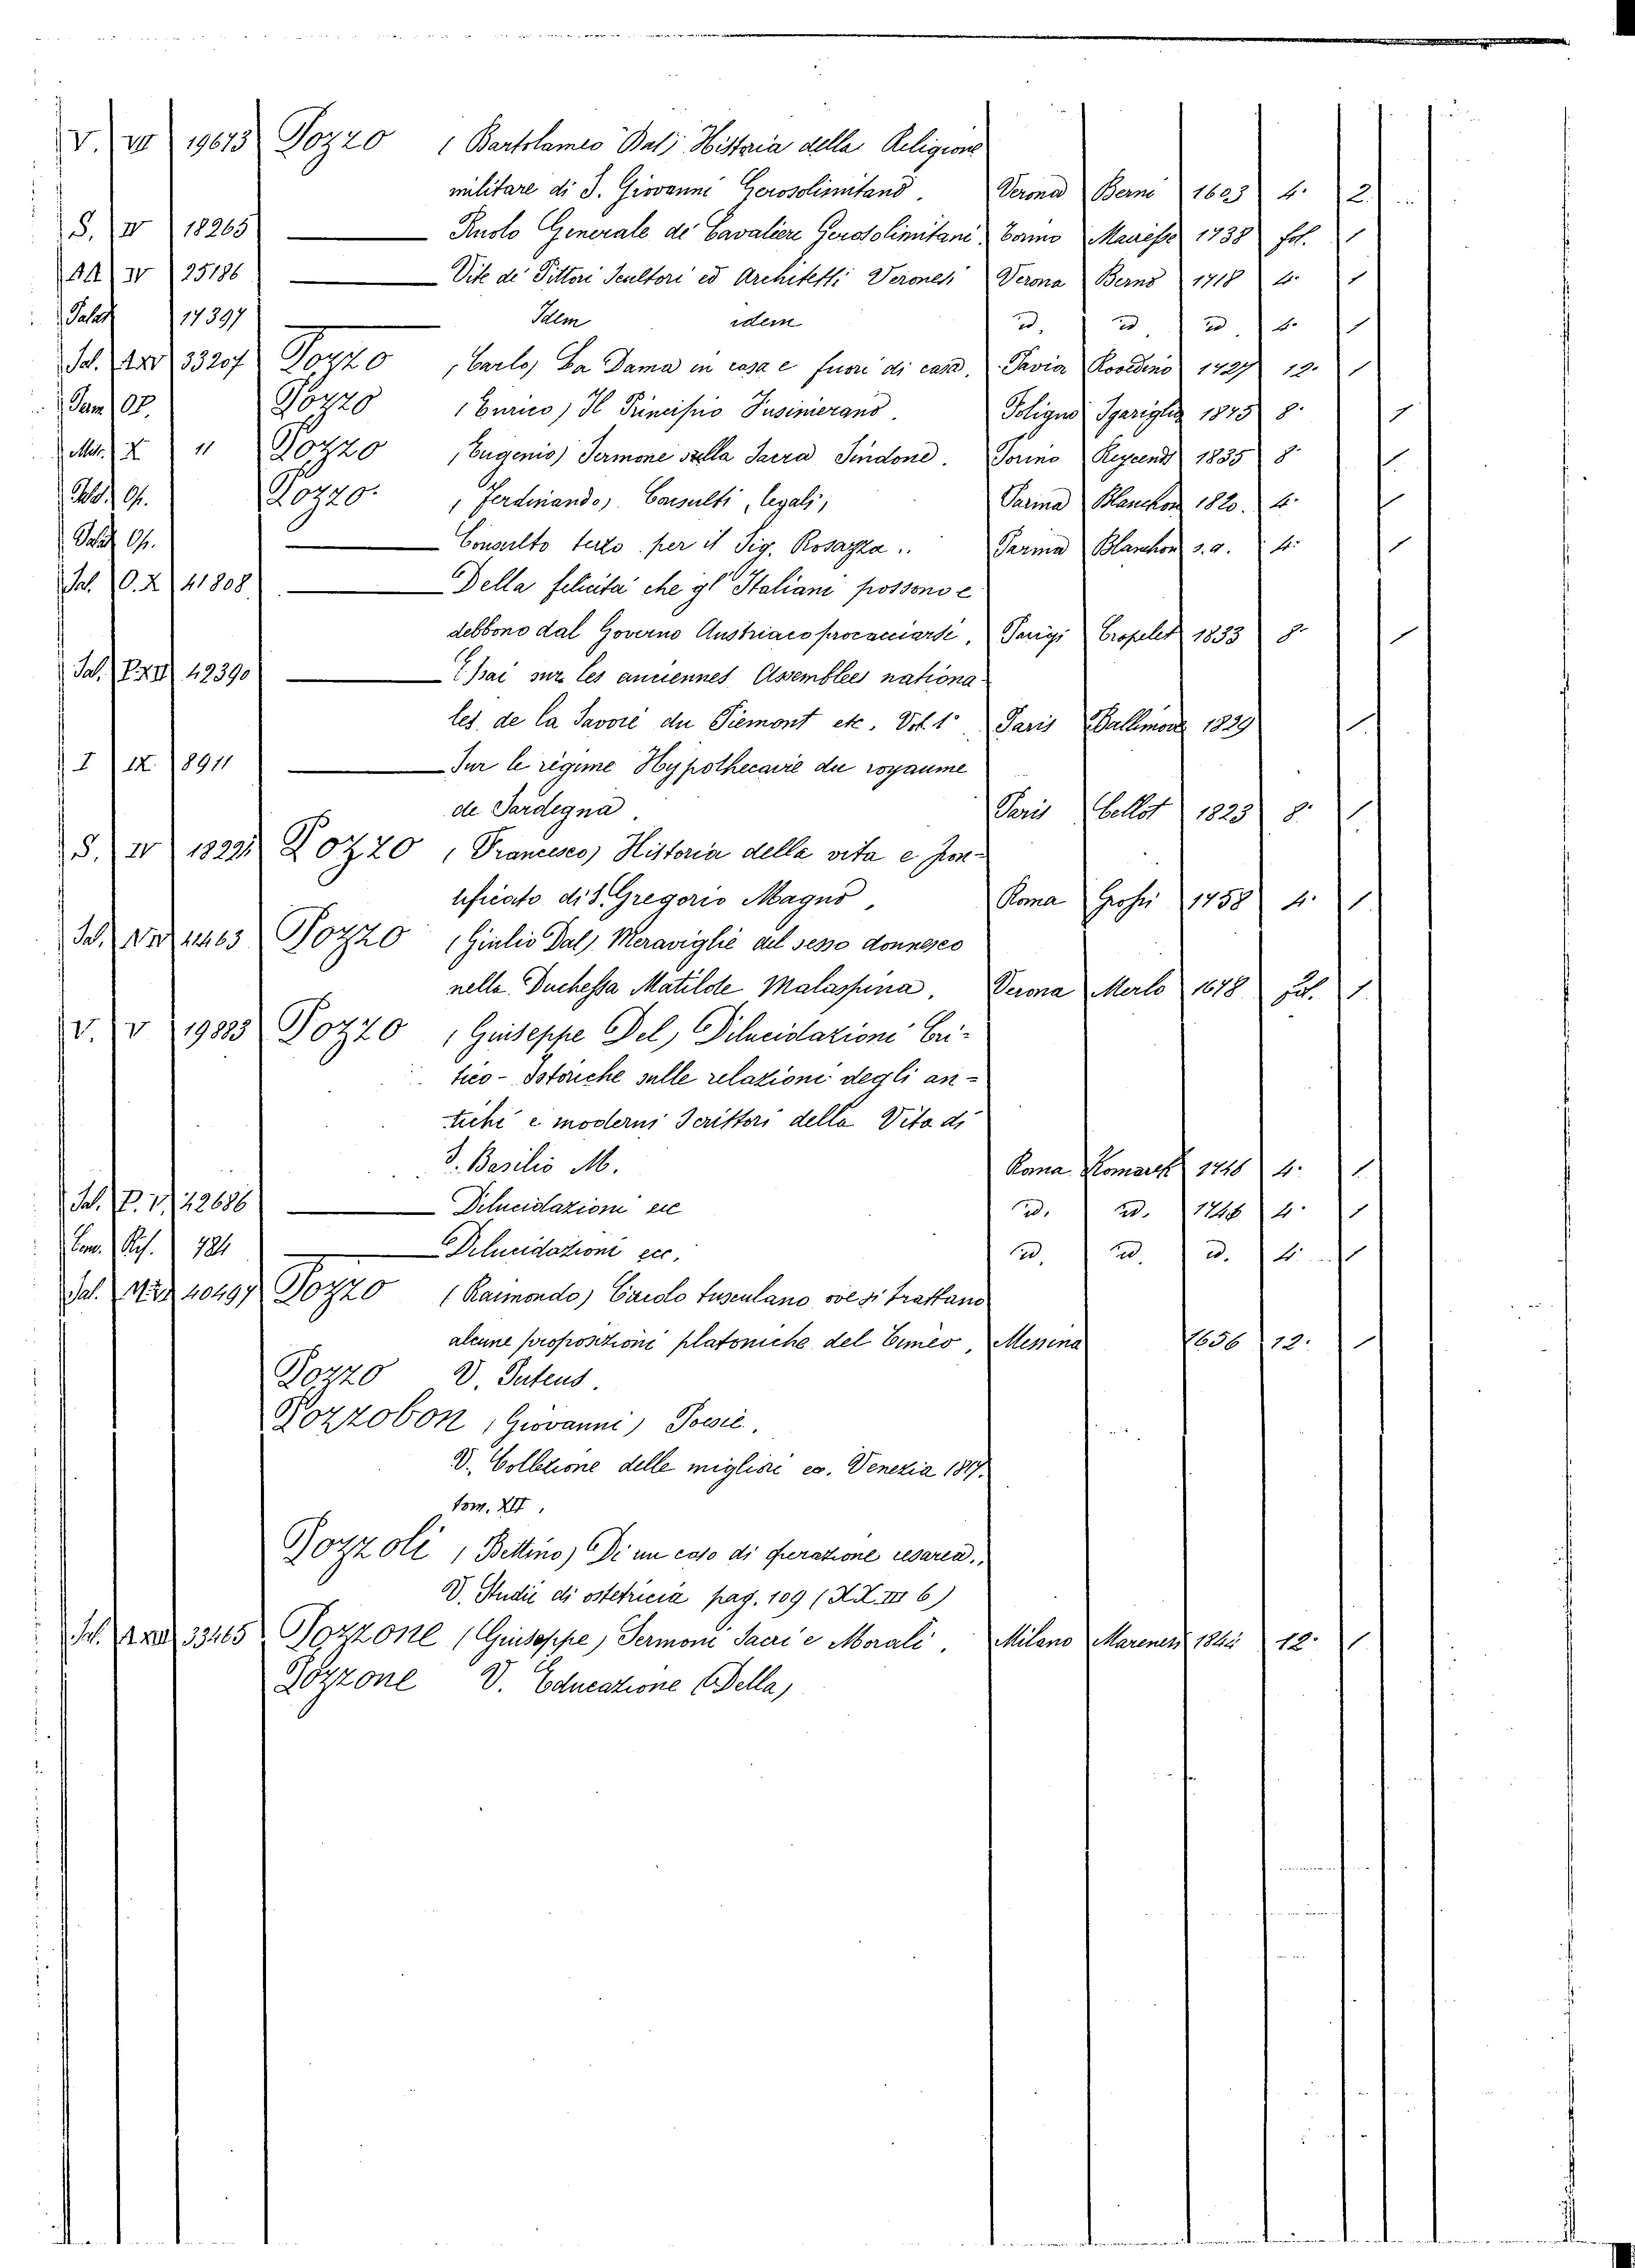 V. VII 19673 Pozzo (Bartolameo Dal) Historia della Religione
militare di S. Giovanni Gerosolimitano. Verona Berni 1603 4. 2.
S. IV 18265 — Ruolo Generale de Cavalieri Gerosolimitani. Torino Mairesse 1738 fol. 1
AA IV 25186 — Vite de' Pittori Scultori ed Architetti Veronesi Verona Berno 1718 4. 1
Palat 17397 — Idem idem id. id id. 4. 1
Sal. 33207 Pozzo (Carlo) La Dama in casa e fuori di casa. Pavia 1727 12. 1
OP. Pozzo (Enrico) Il Principio Fusinierano. Foligno Sgariglia 1875 8. 1
X 11 Pozzo (Eugenio) Sermone sulla Sacra Sindone. Torino 1835 8. 1
Op. Pozzo (Ferdinando) Consulti legali, Parma Blanchon 1820. 4. 1
Op. — Consulto terzo per il Sig. Rosazza.. Parma Blanchon s.a. 4. 1
Sal. O.X 41808 — Della felicità che gl'Italiani possono e
debbono dal Governo Austriaco procacciarsi. Parigi 1833 8. 1
Sal. 42390 — Essai sur les anciennes Assemblées nationa-
les de la Savoie du Piemont etc. Vol. 1° Paris Ballimore 1829 1
I IX 8911 — Sur le régime Hypothecaire du royaume
de Sardegna. Paris Cellot 1823 8. 1
S. IV 18221 Pozzo (Francesco) Historia della vita e pon-
tificato di S. Gregorio Magno, Roma Grossi 1758 4. 1
Sal. Pozzo (Giulio Dal) Meraviglie del sesso donnesco
nella Duchessa Matilde Malaspina. Verona Merlo 1678 fol. 1
V. V 19883 Pozzo (Giuseppe Del) Dilucidazioni Cri-
tico-Istoriche sulle relazioni degli an-
tichi e moderni Scrittori della Vita di
S. Basilio M. Roma Komarek 1746 4. 1
Sal. P. V. 42686 — Dilucidazioni ecc id. id. 1746 4. 1
Com. Ris. 784 — Dilucidazioni ecc. id. id. id. 4. 1
Sal. 40497 Pozzo (Raimondo) Circolo tusculano ove si trattano
alcune propositioni platoniche del Timeo, Messina 1656 12. 1
Pozzo V. Puteus.
Pozzobon (Giovanni) Poesie.
V. Collezione delle migliori ec. Venezia 1817.
tom. XII.
Pozzoli (Bettino) Di un caso di operazione cesarea.
V. Studii di ostetricia pag. 109 (XX. III 6)
Sal. 33465 Pozzone (Giuseppe) Sermoni Sacri e Morali. Milano 12. 1
Pozzone V. Educazione (Della)